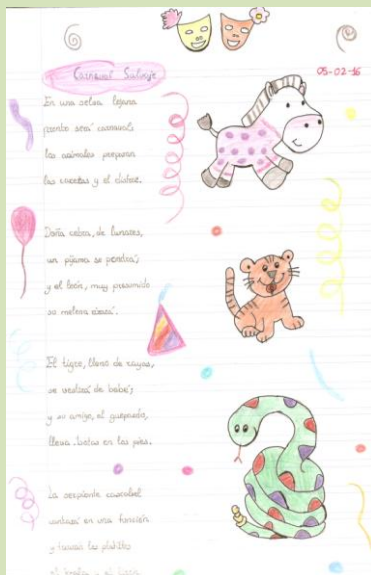 Carnaval Salvaje
05-02-16
En una selva lejana
pronto será carnaval;
los animales preparan
las caretas y el disfraz.
Doña cebra, de lunares,
un pijama se pondrá;
y el león, muy presumido
su melena rizará.
El tigre, lleno de rayas,
se vestirá de bebé;
y su amigo, el guepardo,
lleva botas en los pies.
La serpiente cascabel
actuará en una función
y tocará los platillos
el bombo y el